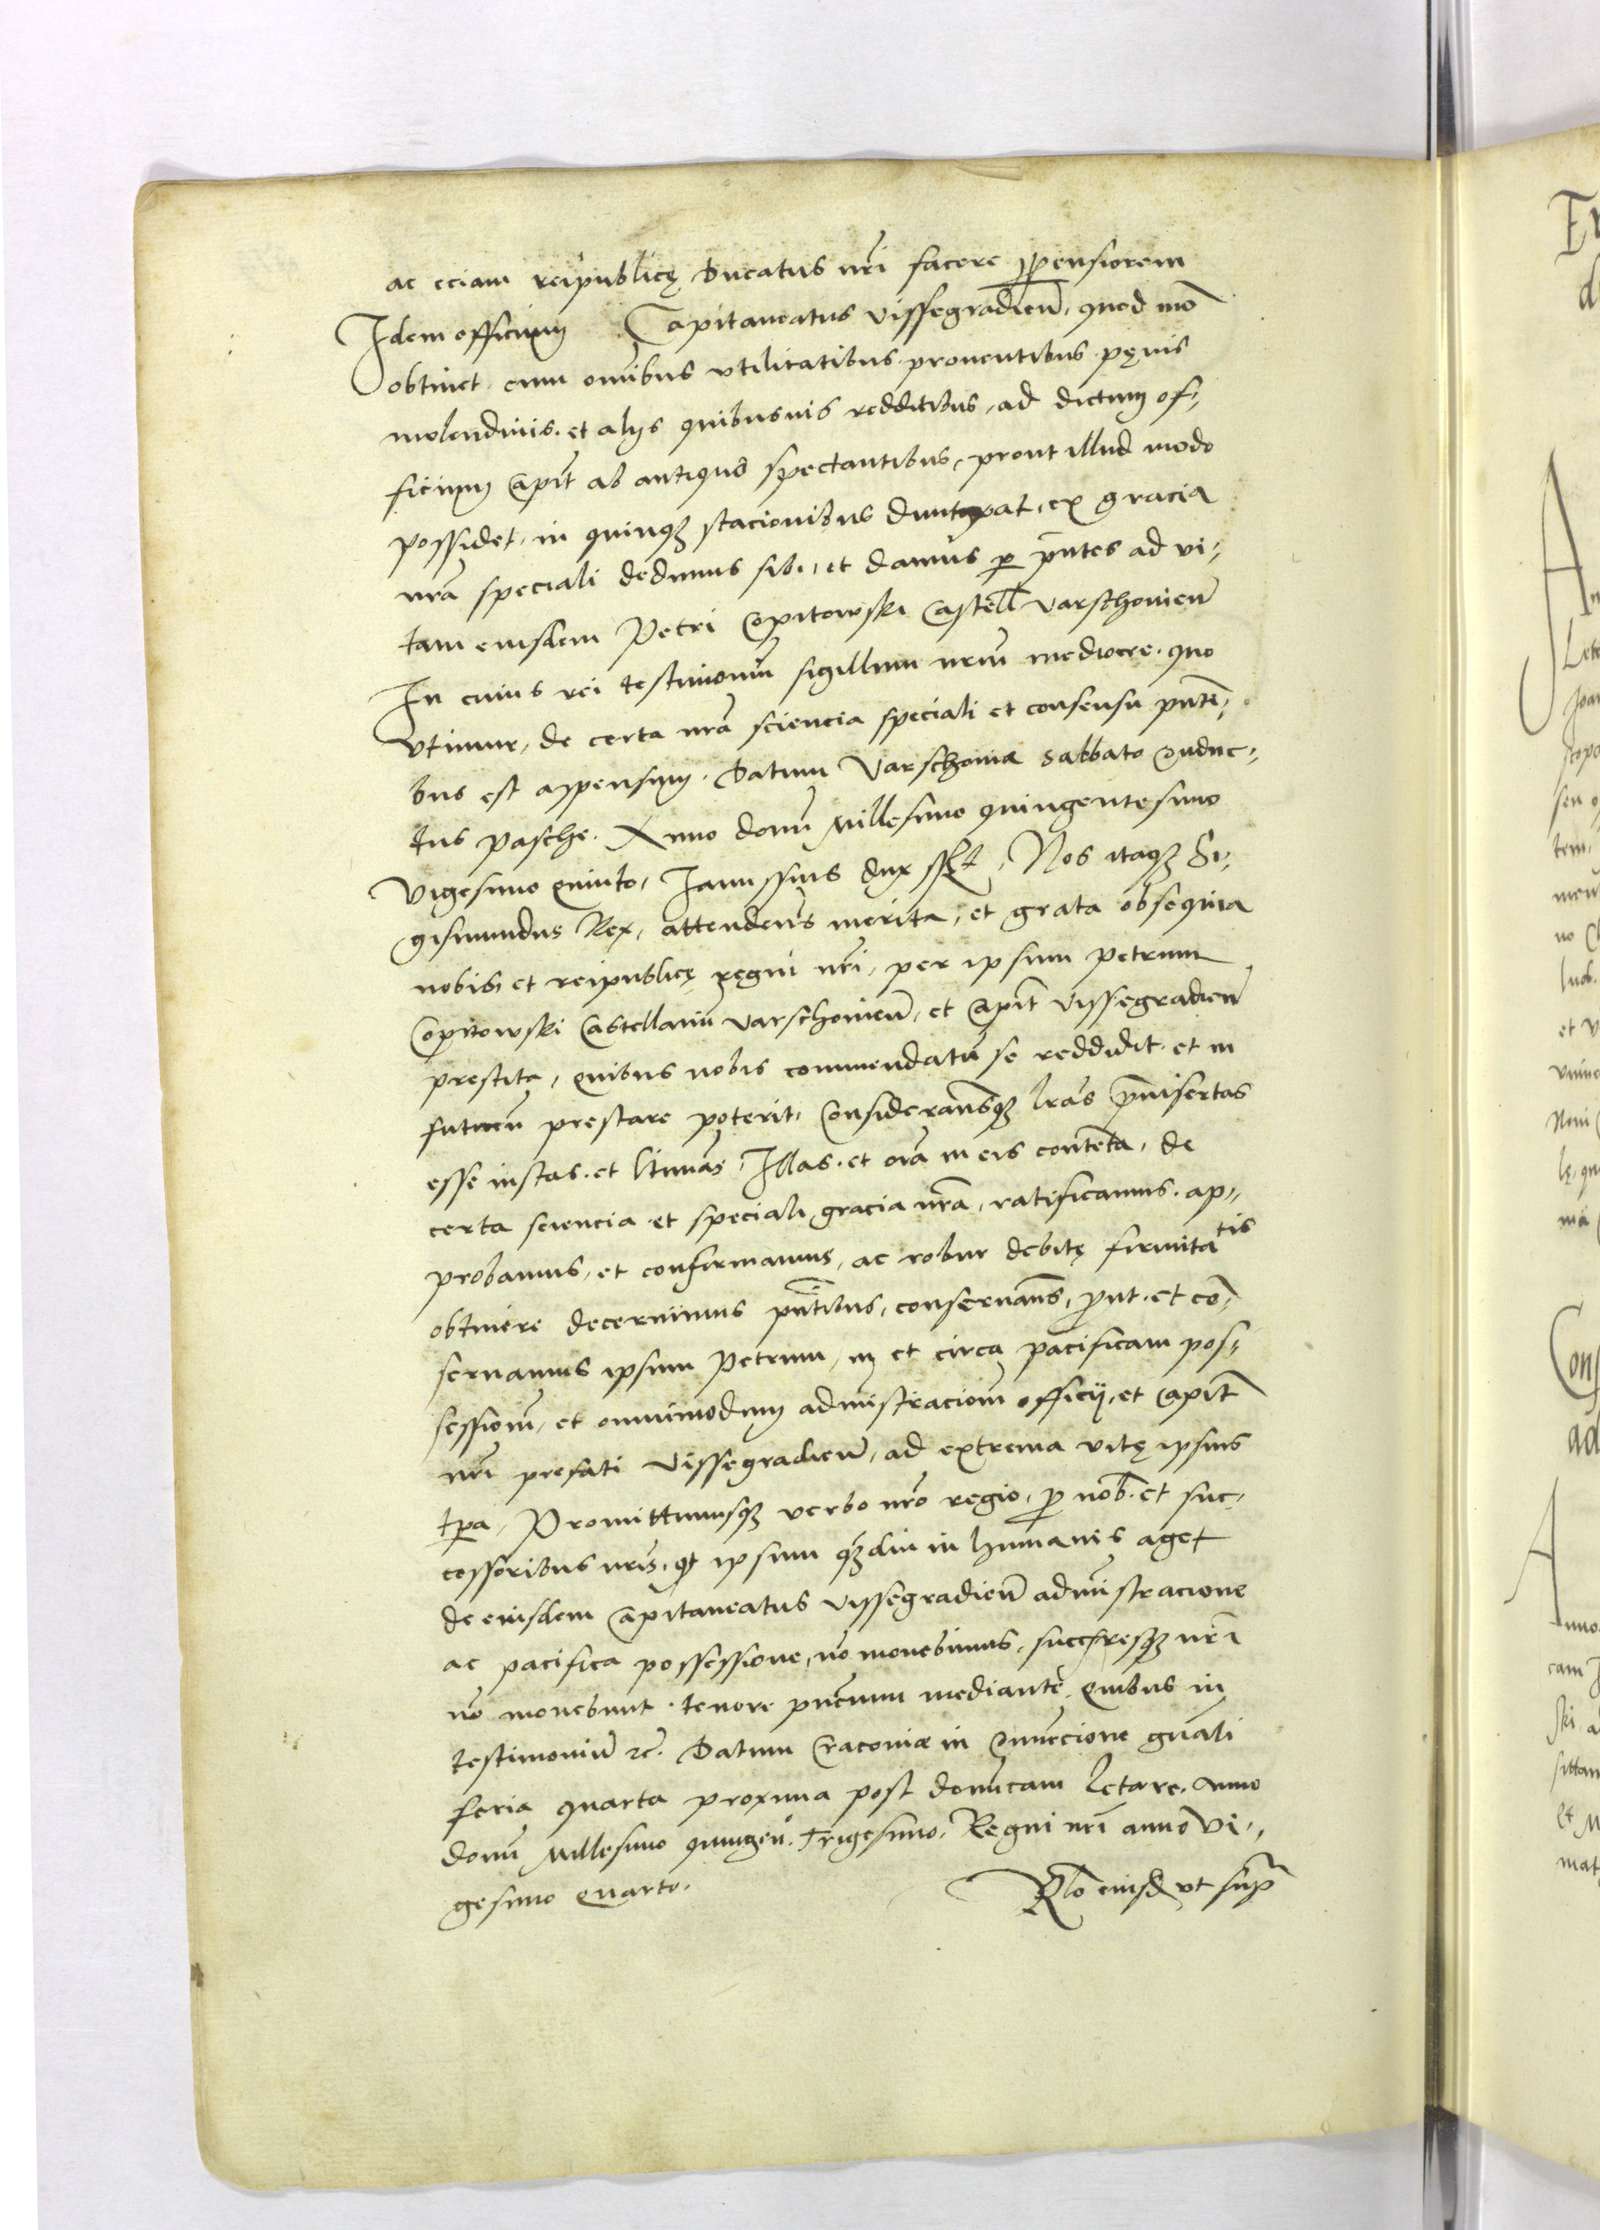 ac eciam reipublicę Ducatus nrĩ facere ꝓpensiorem
Idem officium Capitaneatus vissegradieñ, quod mõ
obtinet, cum oñibus vtilitatibus, prouentibus, pęnis
molendinis, et alijs quibusuis redditibus, ad dictum of-
ficium Capit̃ ab antiquo spectantibus, prout illud modo
possidet, in quinqȝ stacionibus duntaxat, ex gracia
nrã speciali dedimus sibi, et damus ꝑ p̃ntes ad vi-
tam eiusdem Petri Copitowski Castell̃ Varschouień
In cuius rei testimoniũ sigillum nrũm mediocre, quo
vtimur, de certa nrã sciencia speciali et consensu pñti-
bus est appensum. Datum Varschouiæ Sabbato Conduc-
tus Pasche. Anno domĩ Millesimo quingentesimo
Vigesimo Quinto, Janussius dux sst, Nos itaqȝ Si-
gismundus Rex, attendeñs merita, et grata obsequia
nobis, et reipublicę regni nrĩ, per ipsum Petrum
Copitowski Castellanũ Varschouieñ, et Capit̃ Vissegradieñ
prestita, quibus nobis commendatũ se reddidit, et in
futurũ prestare poterit, Consideransqȝ lrãs p̃insertas
esse iustas, et ltimas, Illas, et oĩa in eis contẽta, de
certa sciencia et speciali gracia nrã, ratificamus, ap-
probamus, et confirmamus, ac robur debitę firmitatis
obtinere decernimus pñtibus, conseruañs, ꝓut, et cõ-
seruamus ipsum Petrum, in et circa pacificam pos-
sessionẽ, et omnimodum administracionẽ officij, et Capit̃
nrĩ prefati Vissegradieñ, ad extrema vitę ipsius
tp̃a, Promittimusqȝ verbo nrõ regio, ꝓ nob̃ et suc-
cessoribus nrĩs, qȝ ipsum qȝdiu in humanis aget
de eiusdem Capitaneatus Vissegradieñ administracione
ac pacifica possessione, nõ mouebimus, succ̃resqȝ nrĩ
nõ mouebunt, tenore pñcium mediante, Quibus in
testimoniũ rc̃. Datum Cracouiæ in Cõuencione gñali
feria quarta proxima post domĩcam Letare, Anno
domĩ Millesimo quingeñ. Trigesimo, Regni nrĩ anno Vi-
gesimo Quarto.
Rlõ eiusd̃ vt sup̃